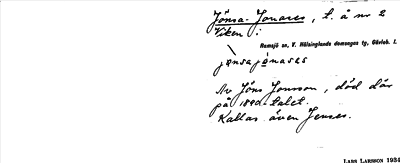 Jönsa-Jonases, t. å nr 2
Viken i
Ramsjö sn, V. Hälsinglands domsagas tg, Gävleb. l.
jønsajònases
Av Jöns Jonsson, död där
på 1880-talet.
Kallas även Jenses.
LARS LARSSON 1934